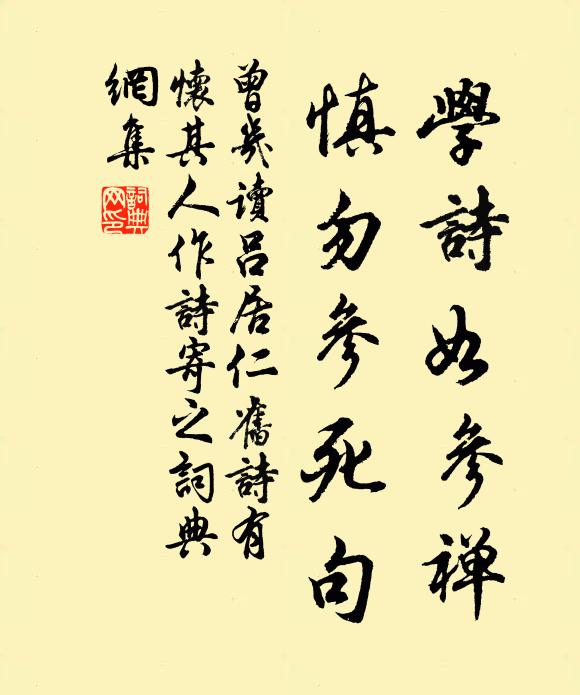 學詩如參禅
慎勿參死句
曾幾讀呂居仁舊詩有
懷其人作詩寄之詞典
網集
詞典
网印